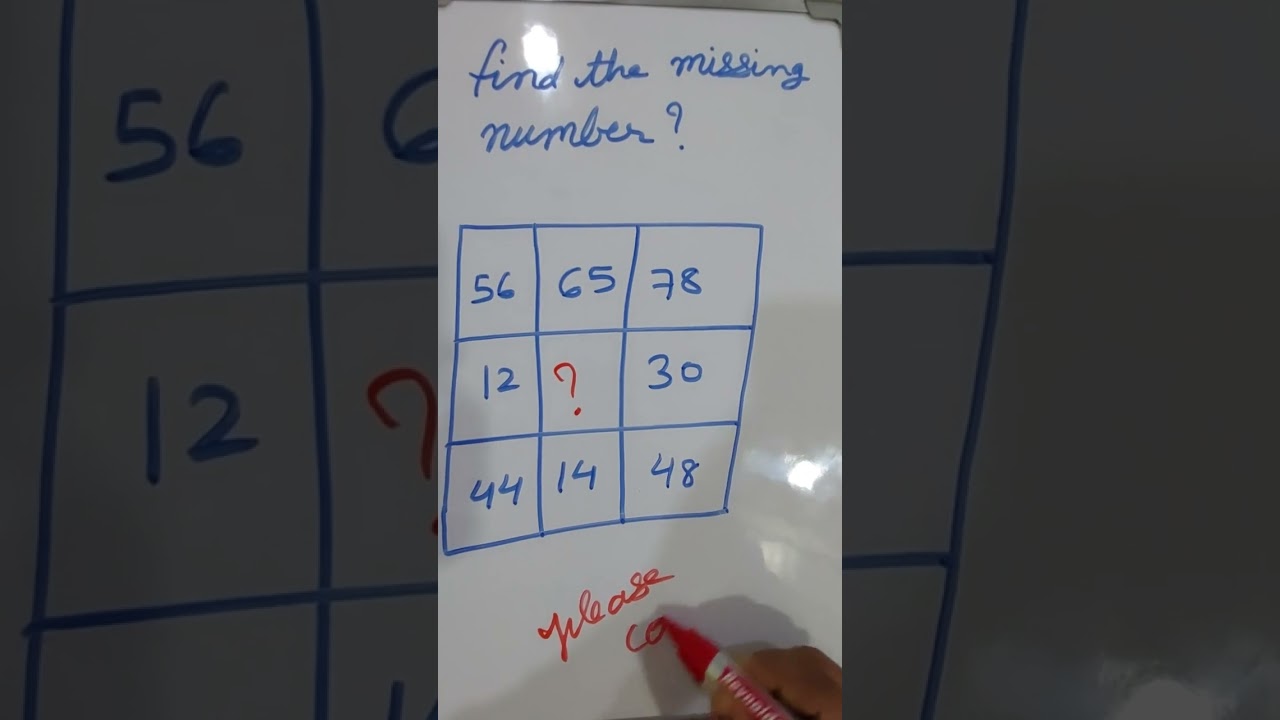 find the missing
number?
56 65 78
12 ? 30
44 14 48
please
co